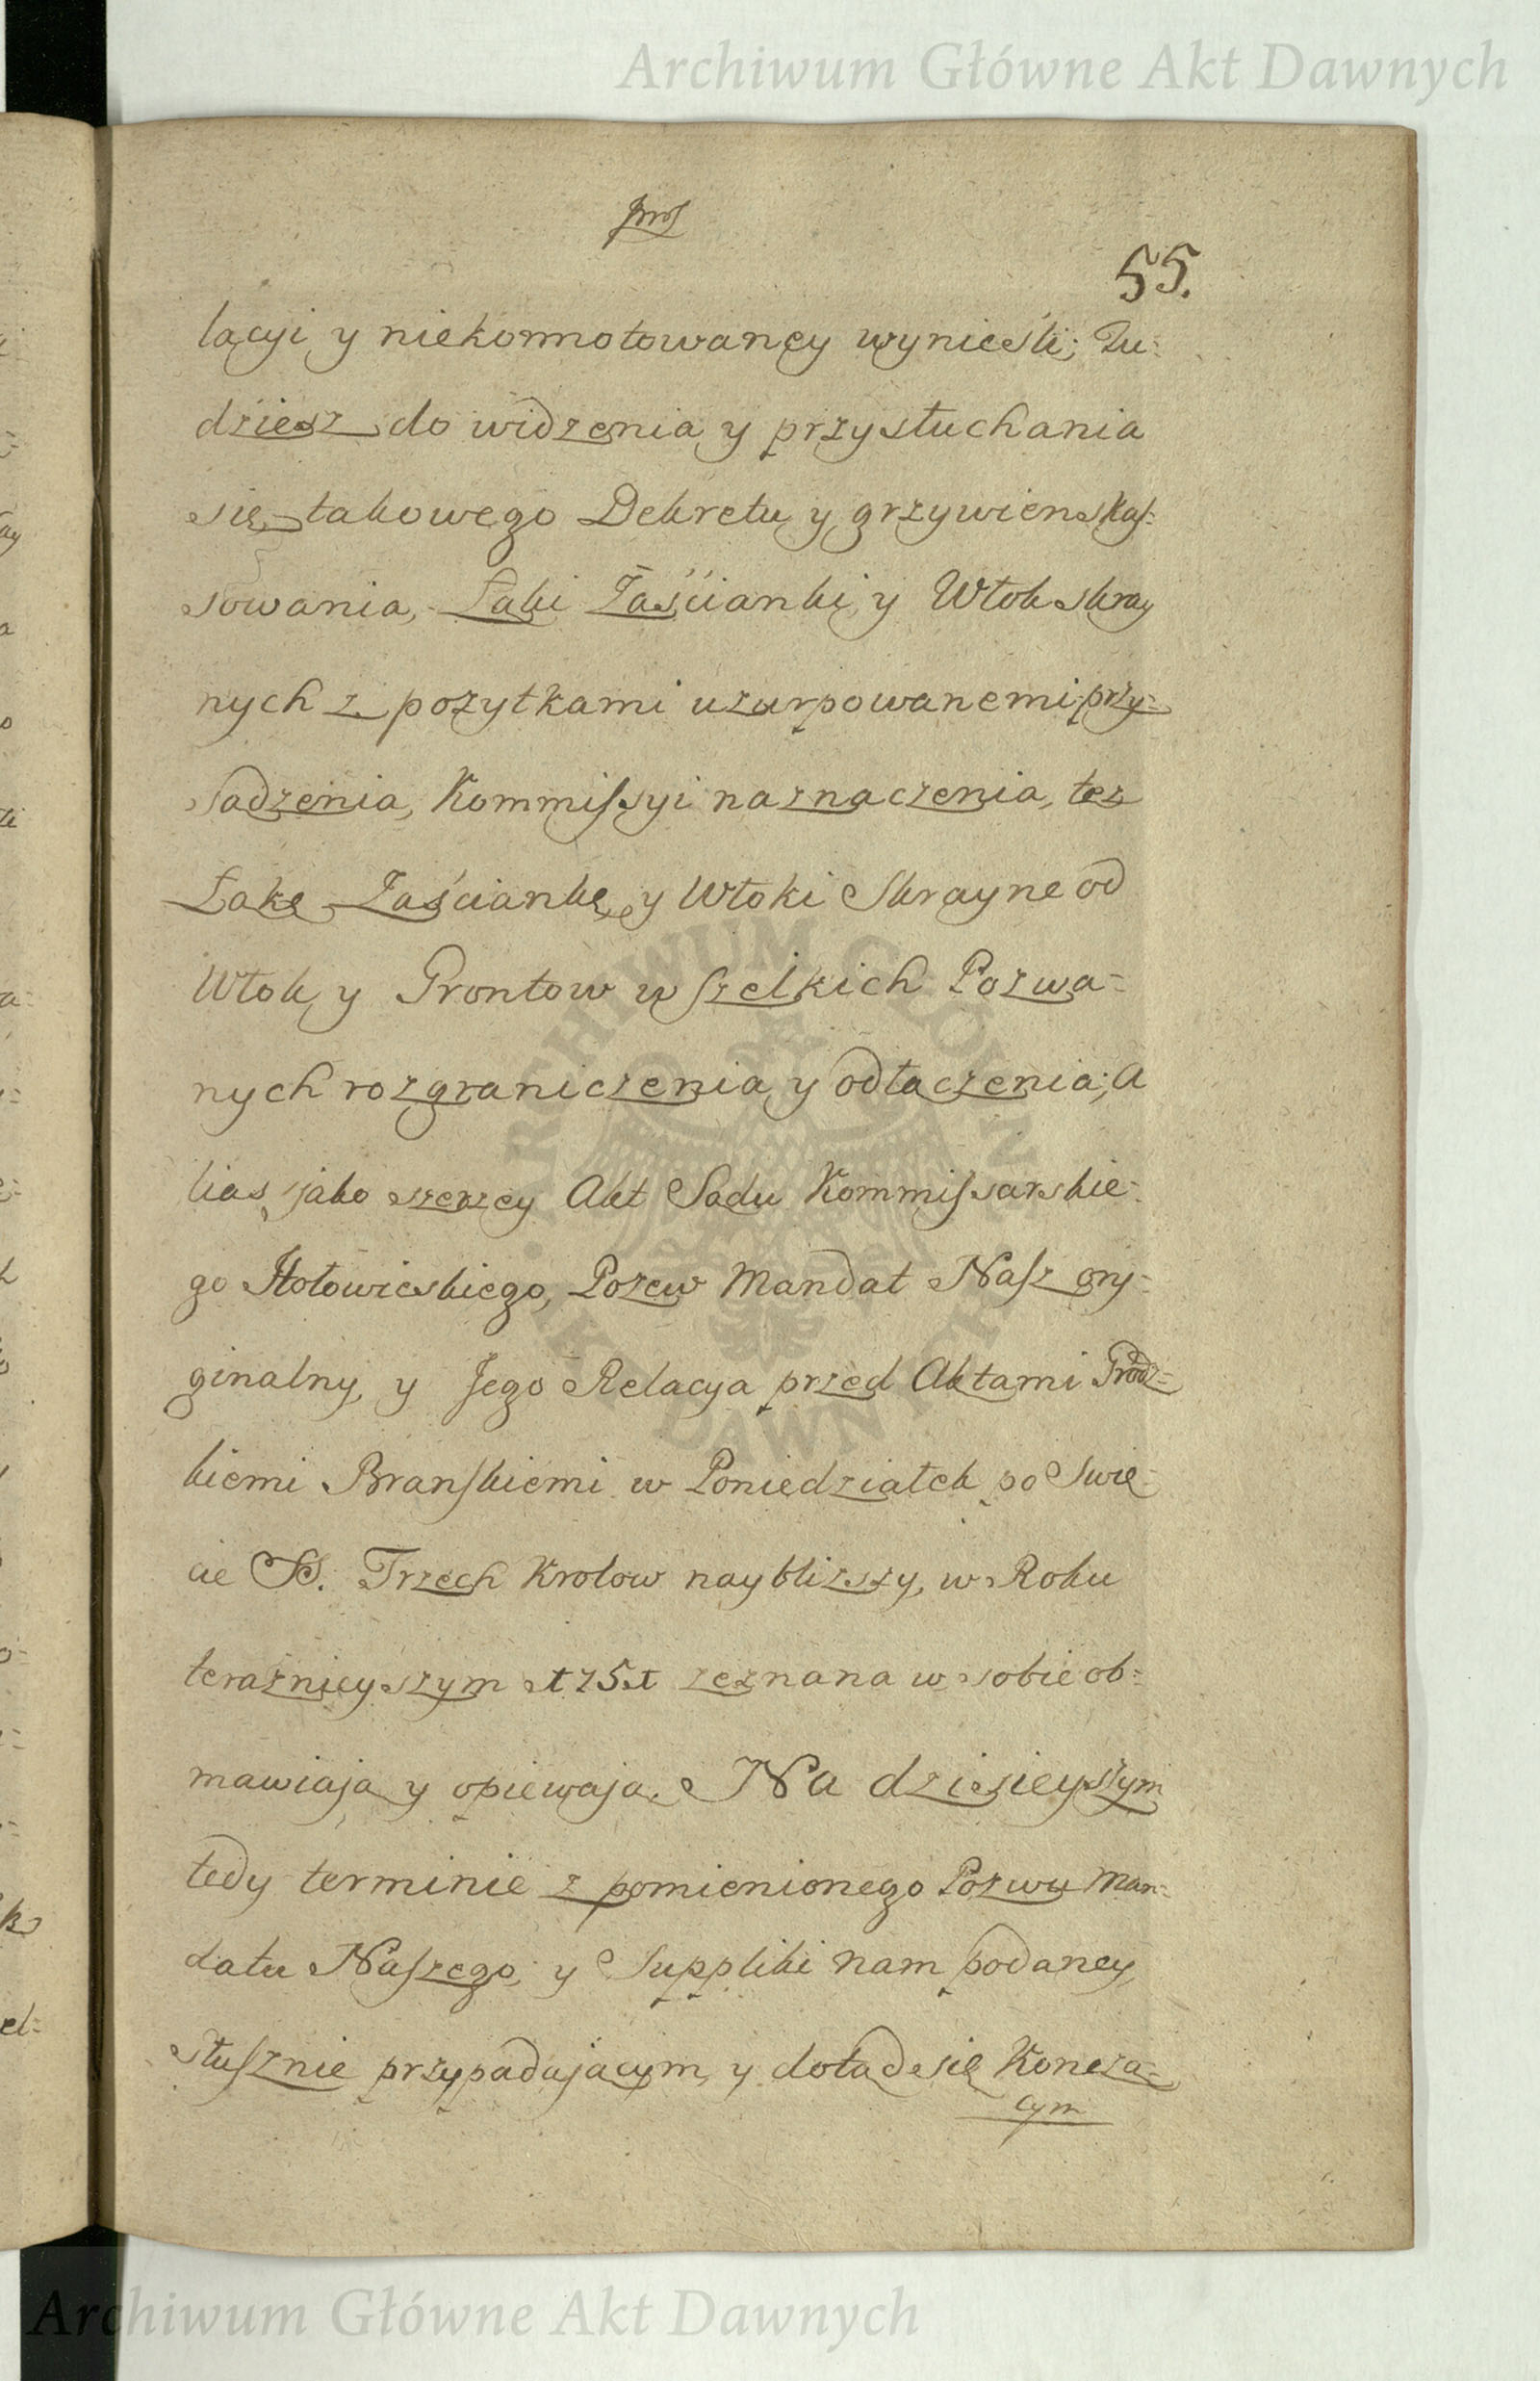 Archiwum Główne Akt Dawnych
55.
lacyi y niekonnotowaney wynieśli; Tu=
dziesz do widzenia y przysłuchania
się takowego Dekretu y grzywien skas=
sowania, Łąki Zaścianki y Włok skray
nych z pozytkami uzurpowanemi przy=
sądzenia, Kommissyi naznaczenia, tez
Łąkę Zaściankę y Włoki Skrayne od
Włok y Grontow wszelkich Pozwa=
nych rozgraniczenia y odłączenia; A
lias jako szerzey Akt Sądu Kommissarskie=
go Hołowieskiego, Pozew Mandat Nasz ory=
ginalny, y Jego Relacya przed Aktami Grodz=
kiemi Branskiemi w Poniedziałek po Swię=
cie SS. Trzech Krolow nayblizszy, w Roku
teraznieyszym 1751 zeznana w sobie ob=
mawiają y opiewają. Na dzisieyszym
tedy terminie z pomienionego Pozwu Man=
datu Naszego, y Suppliki nam podaney,
słusznie przypadającym, y dotąd się Koncza=
cym
Archiwum Główne Akt Dawnych